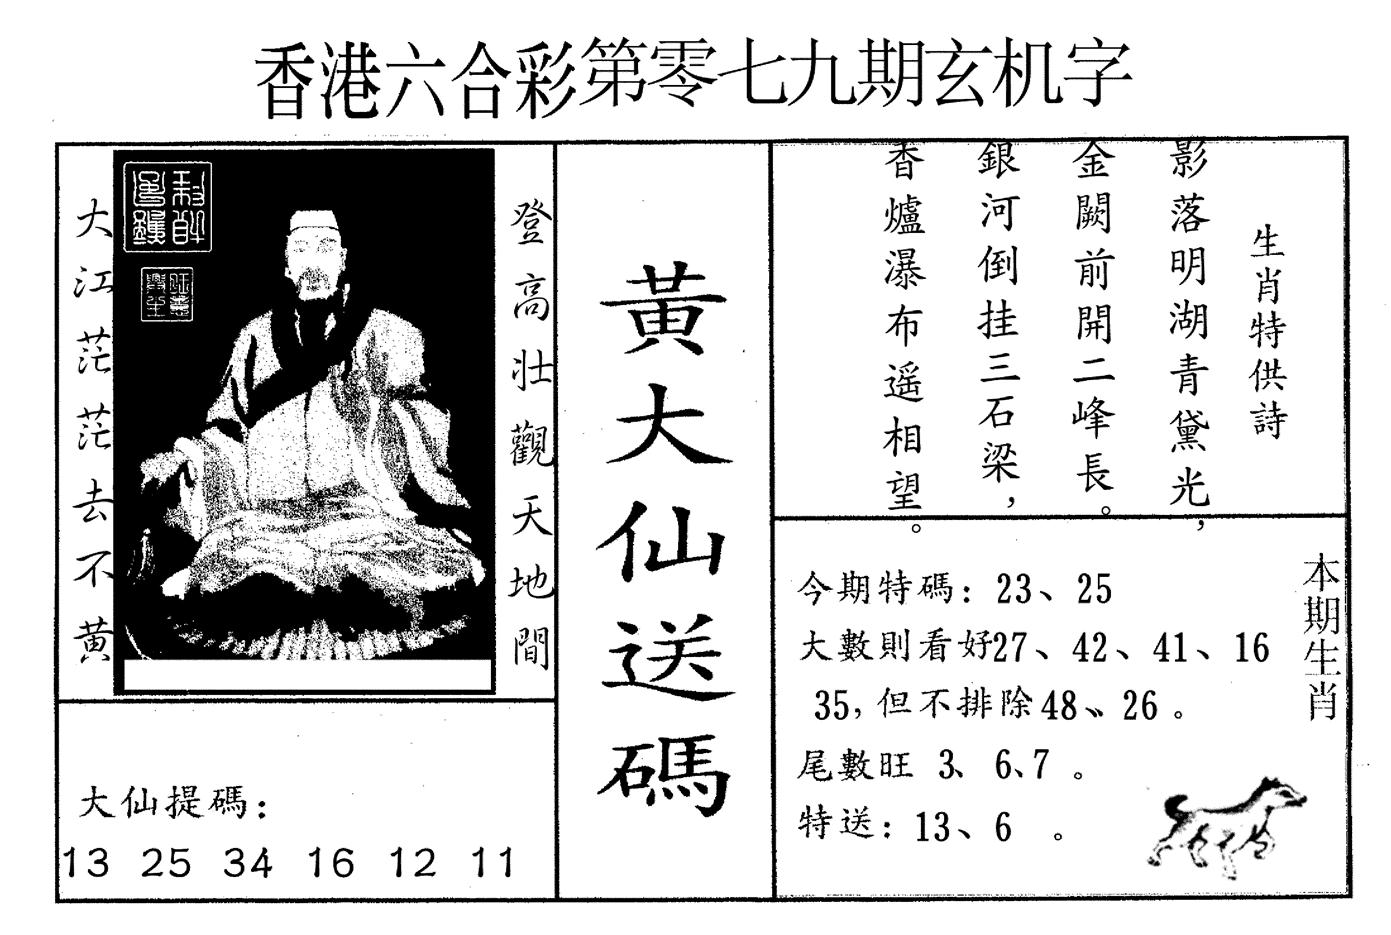 香港六合彩第零七九期玄机字
登高壯觀天地間
大江茫茫去不黄
黃大仙送碼
生肖特供詩
影落明湖青黛光，
金闕前開二峰長。
銀河倒挂三石梁，
香爐瀑布遥相望。
大仙提碼：
13 25 34 16 12 11
本期生肖
今期特碼：23、25
大數則看好27、42、41、16
35，但不排除48、26。
尾數旺 3、6、7。
特送：13、6。